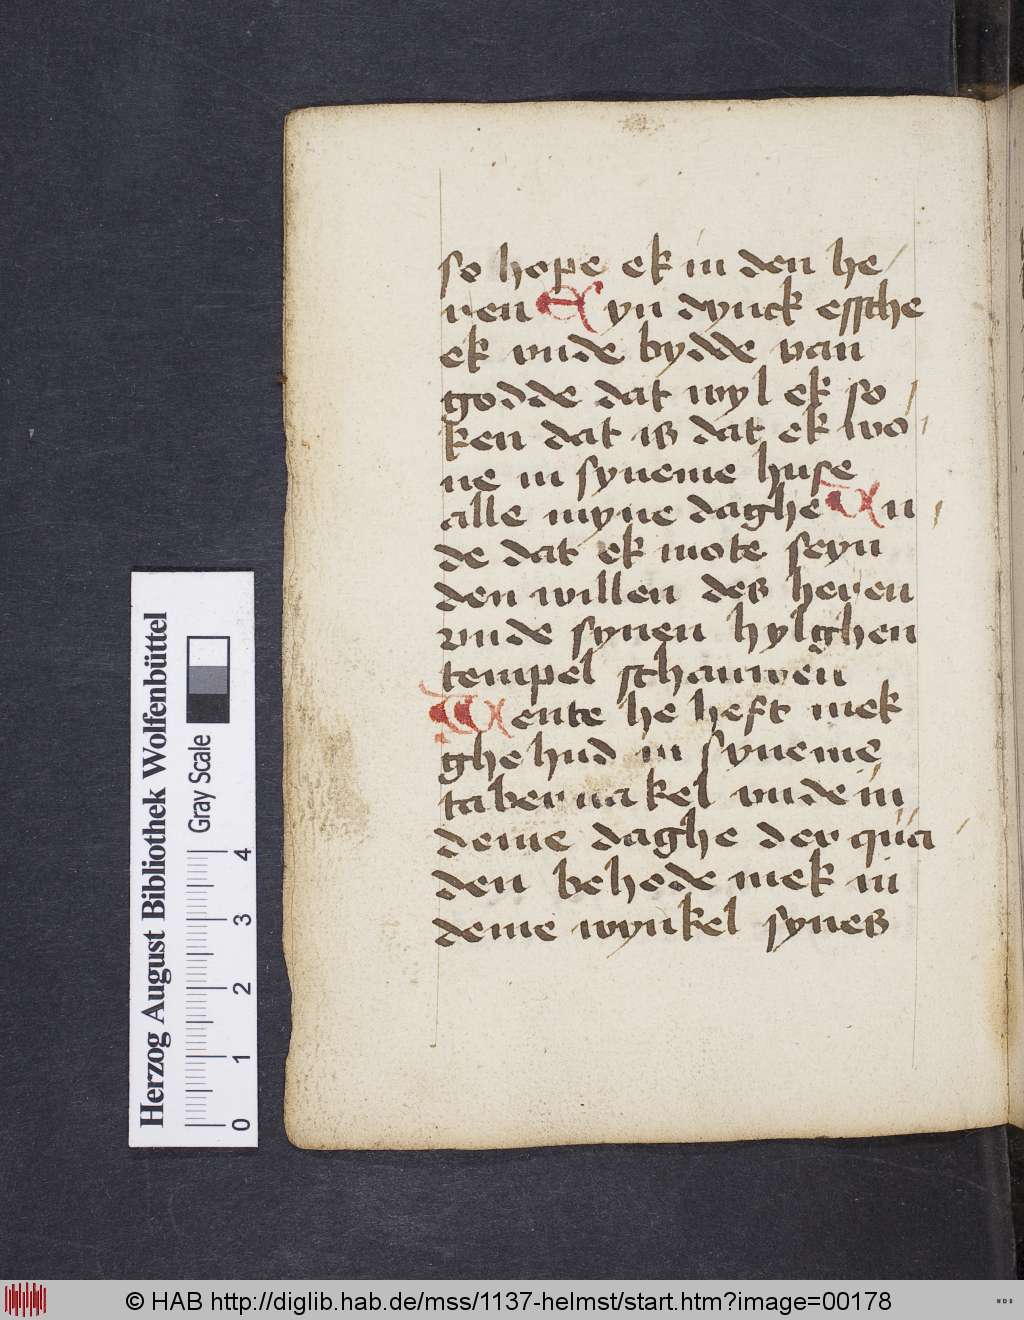 so hope ek in den he/
ren Eyn dynck essche
ek vnde bydde van
godde dat wyl ek so/
ken dat is dat ek wo/
ne in syneme huse
alle myne daghe Vn/
de dat ek mote seyn
den willen des heren
vnde synen hylghen
tempel schauwen
Wente he heft mek
ghehud in syneme
tabernakel vnde in
deme daghe der qua/
den behode mek in
deme wynkel synes
Herzog August Bibliothek Wolfenbüttel
Gray Scale
0 1 2 3 4
© HAB http://diglib.hab.de/mss/1137-helmst/start.htm?image=00178